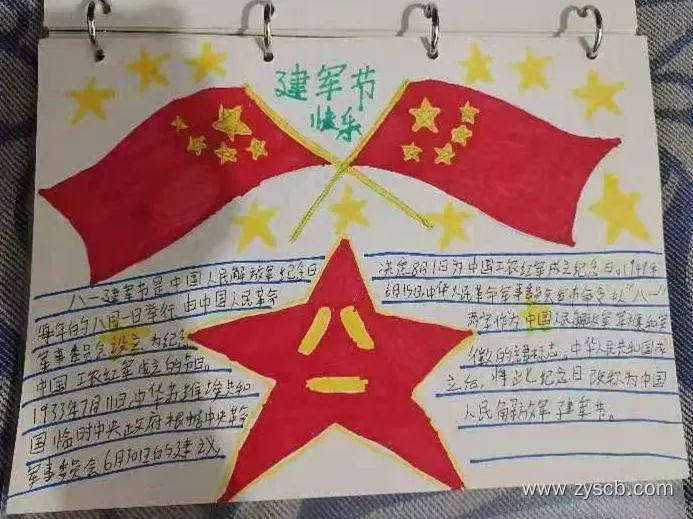 建军节
快乐
八一建军节是中国人民解放军纪念日
每年的八月一日举行由中国人民革命
军事委员会设立为纪念
中国工农红军成立的节日。
1933年7月11日中华苏维埃共和
国临时中央政府根据中央革命
军事委员会6月30日的建议
决定8月1日为中国工农红军成立纪念日。1949年
6月15日中国人民革命军事委员会发布命令以“八一”
两字作为中国人民解放军军旗和军
徽的主要标志。中华人民共和国成
立后,将此纪念日改称为中国
人民解放军建军节。
八一
www.zyscb.com